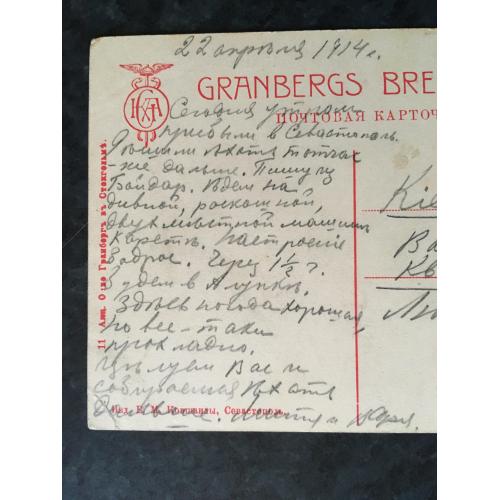 22 апреля 1914 г.
GRANBERGS BRE
ПОЧТОВАЯ КАРТОЧ
Сегодня утром
прибыли в Севастополь.
Рѣшили ѣхать тотчас
-же дальше. Пишу из
Байдар. Ѣдем на
дивной, роскошной,
двухместной машине
Каретѣ. Настроение
бодрое. Через 1½ г.
будем в Алупкѣ.
Здѣсь погода хорошая,
но все-таки
прохладно.
Цѣлуем Вас и
собираемся ѣхать
дальше.
Kie
Ва
Кв
11 Акц. О-во Гранбергъ въ Стокгольмѣ.
Изд. Е. М. Севастополь.